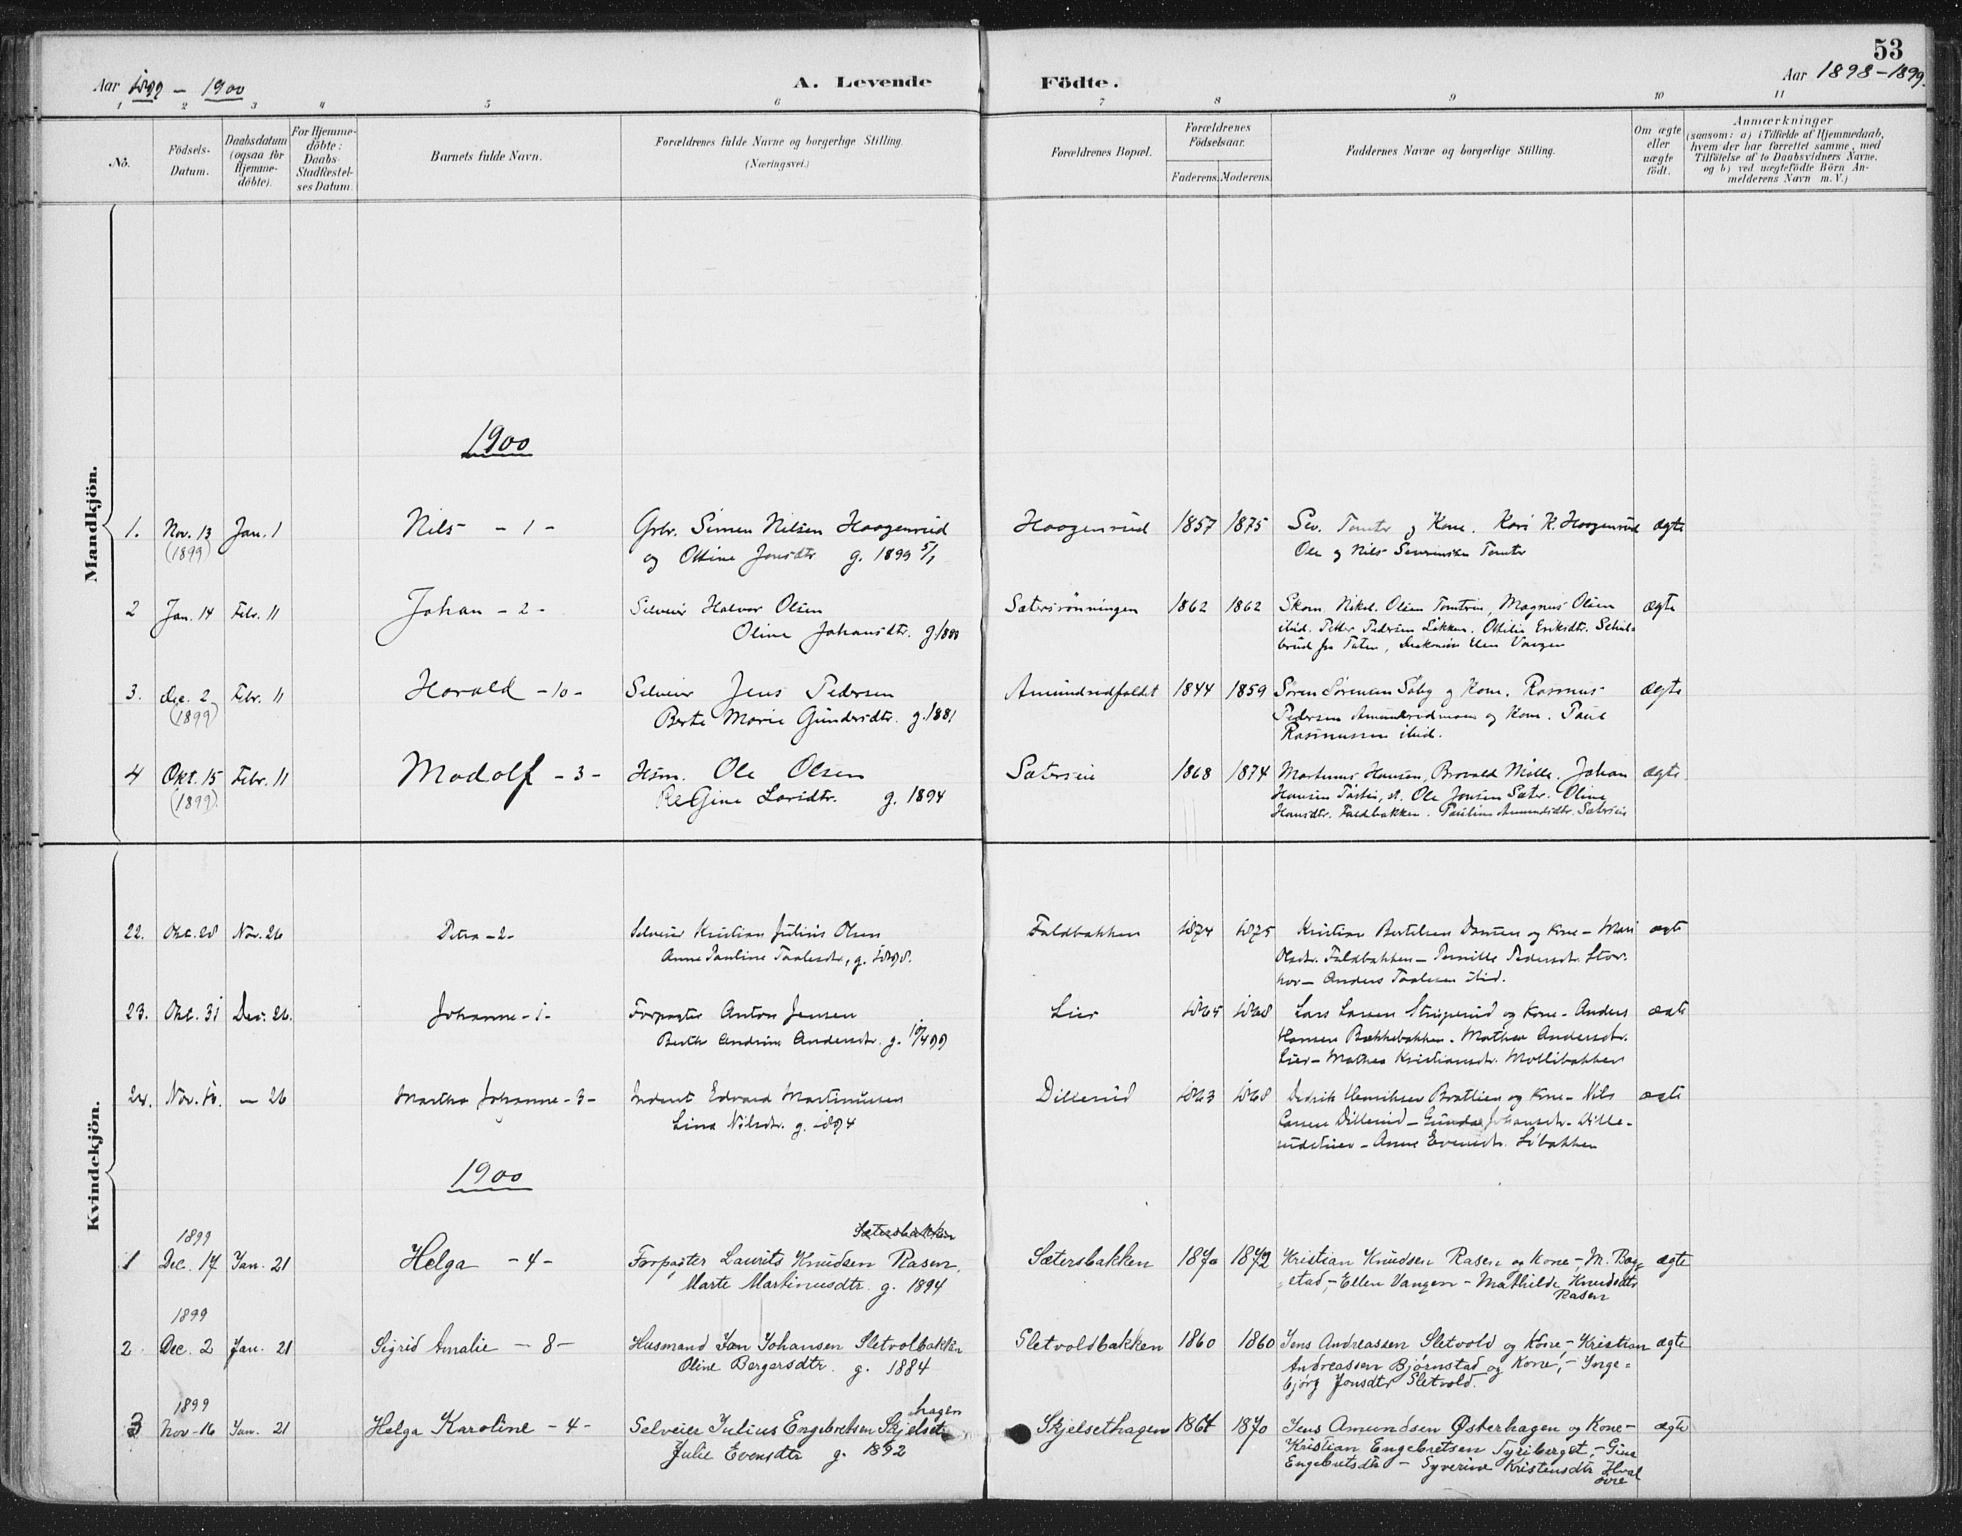 53
Aar 1899 - 1900
A. Levende Födte.
Aar 1898-1899.
1 2 3 4 5 6 7 8 9 10 11
No.
Födsels-Datum.
Daabsdatum (ogsaa for Hjemme-döbte).
For Hjemme-döbte: Daabs-Stadfæstel-ses Datum.
Barnets fulde Navn.
Forældrenes fulde Navne og borgerlige Stilling. (Næringsvei.)
Forældrenes Bopæl.
Forældrenes Födselsaar.
Faderens. Moderens.
Faddernes Navne og borgerlige Stilling.
Om ægte eller uægte födt.
Anmærkninger
(saasom: a) i Tilfælde af Hjemmedaab,
hvem der har forrettet samme, med
Tilföielse af to Daabsvidners Navne,
og b) ved uægtefödte Börn An-
melderens Navn m. V.)
Mandkjön.
1900
1. Nov. 13 Jan. 1 Nils - 1 - Grbr. Simen Nilsen Haagenrud Haagenrud 1857 1875 Sev. Tomter og Kone. Kari K. Haagenrud ægte
(1899) og Oline Jonsdtr g. 1899 5/1 Ole og Nils Severinsen Tomter
2 Jan. 14 Febr. 11 Johan - 2 - Selveier Halvor Olsen Sætersrønningen 1862 1862 Skom. Nikol. Olsen Tomtein, Magnus Olsen ægte
Oline Johansdtr. ibid. Petter Pedersen Løkken. Otilie Eriksdtr.
fra Toten, Ellen Vangen
3. Dec. 2 Febr. 11 Harald - 10 - Selveier Jens Pedersen Amundrudfaldet 1844 1859 Søren Sørensen Søby og Kone. Rasmus ægte
(1899) Berte Marie Gundersdtr. g. 1881 Pedersen og Kone. Paul
Rasmussen ibid.
4 Okt. 15 Febr. 11 Modolf - 3 - Hsm. Ole Olsen Sæterseie 1868 1874 Martinus Hansen, Brovald Mølle. Johan ægte
(1899). Regine Larsdtr. g. 1894 Hansen Ole Jonsen Sæter. Oline
Hansdtr. Faldbakken. Pauline Amundsdtr. Sæterseie
Kvindekjön.
22. Okt. 28 Nov. 26 Petra - 2 - Selveier Kristian Julius Olsen Faldbakken 1874 1875 Kristian Bertelsen og Kone - Mari ægte
Anne Pauline Taalesdtr., g. 1898. Olsdtr. Faldbakken - Pernille Pedersdtr. Stor-
hov - Anders Taalesen ibid.
23. Okt. 31 Dec. 26. Johanne - 1 - Forpagter Anton Jensen Lier 1865 1868 Lars Larsen og Kone - Anders ægte
Berthe Andrine Andersdtr. g. 10/4 99 Hansen Bækkebakken - Mathea Andersdtr.
Lier - Mathea Kristiansdtr. Mollibakken
24. Nov. 10. - 26 Martha Johanne - 3 - Inderst Edvard Martinussen Dillerud 1863 1868 Didrik Henriksen Bratlien og Kone - Nils ægte
Lina Nilsdtr. g. 1894 Larsen Dillerud - Gunda Johansdtr. Dille-
rudeier - Anne Evensdtr. Libakken
1900
1 1899 Dec. 17 Jan. 21 Helga - 4 - Forpagter Laurits Knudsen Rasen, Sætersbakken Sætersbakken 1870 1872 Kristian Knudsen Rasen og Kone - M. Bag- ægte
Marte Martinusdtr. g. 1894 stad, - Ellen Vangen - Mathilde Knudsdtr
Rasen
2 1899 Dec. 2 Jan. 21 Sigrid Amalie - 8 - Husmand Jan Johansen Sletvolbakken Sletvoldbakken 1860 1860 Jens Andreassen Sletvold og Kone, - Kristian ægte
Oline Bergersdtr. g. 1884 Andreassen Bjørnstad og Kone, - Inge-
bjørg Jonsdtr Sletvold.
3 1899 Nov. 16 Jan. 21 Helga Karoline - 4 - Selveier Julius Engebretsen Skjelset hagen Skjelsethagen 1864 1870 Jens Amundsen Østerhagen og Kone - ægte
Julie Evensdtr g. 1892 Kristian Engebretsen Tyriberget, - Gina
Engebretsdtr - Syverine Kristensdtr Hval
øvre